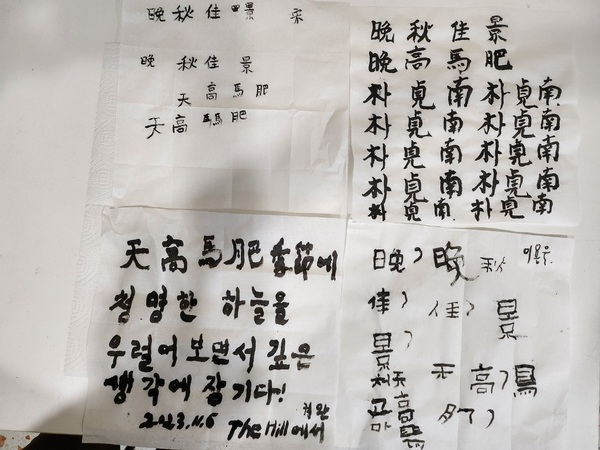 晩 秋 佳
晩 秋 佳 景
天 高 馬 肥
天 高 馬 肥
晩 秋 佳 景
晩 高 馬 肥
朴 貞 南 朴 貞 南
朴 貞 南 朴 貞 南
朴 貞 南 朴 貞 南
朴 貞 南 朴 貞 南
朴 貞 南 朴 貞 南
天 高 馬 肥 季節에
청명한 하늘을
우럴어 보면서 깊은
생각에 잠기다!
2023.11.6 The Hill에서
晩, 晩 秋
佳, 佳, 景
景,
秋天 天 高, 馬
고마 高